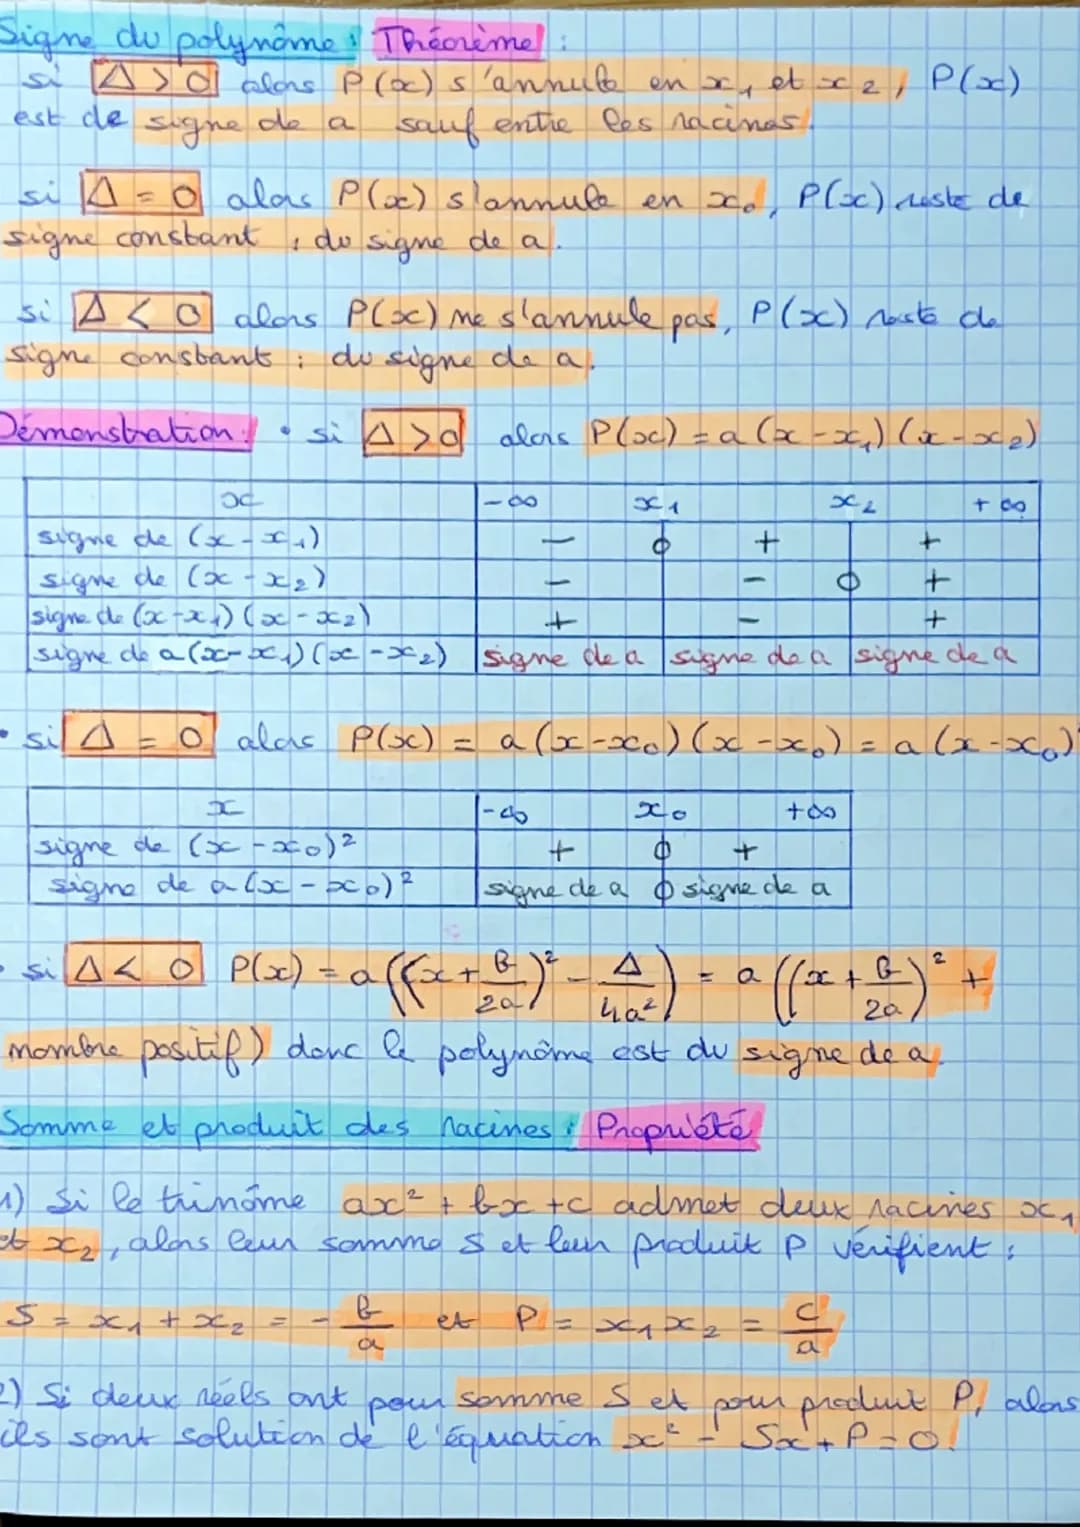 Signe du polynôme : Théorème :
si Δ > 0 alors P(x) s'annule en x₁ et x₂, P(x)
est de signe de a sauf entre les racines.
si Δ = 0 alors P(x) s'annule en x₀, P(x) reste de
signe constant : du signe de a.
si Δ < 0 alors P(x) ne s'annule pas, P(x) reste de
signe constant : du signe de a.
Démonstration : • si Δ > 0 alors P(x) = a(x-x₁)(x-x₂)
x -∞ x₁ x₂ +∞
signe de (x-x₁) - 0 + +
signe de (x-x₂) - - 0 +
signe de (x-x₁)(x-x₂) + - +
signe de a(x-x₁)(x-x₂) signe de a signe de a signe de a
• si Δ = 0 alors P(x) = a(x-x₀)(x-x₀) = a(x-x₀)²
x -∞ x₀ +∞
signe de (x-x₀)² + 0 +
signe de a(x-x₀)² signe de a 0 signe de a
• si Δ < 0 P(x) = a((x+b/2a)² - Δ/4a²) = a((x+b/2a)² +
nombre positif) donc le polynôme est du signe de a.
Somme et produit des racines : Propriété
1) Si le trinôme ax² + bx + c admet deux racines x₁
et x₂, alors leur somme S et leur produit P vérifient :
S = x₁ + x₂ = -b/a et P = x₁x₂ = c/a
2) Si deux réels ont pour somme S et pour produit P, alors
ils sont solution de l'équation x² - Sx + P = 0.